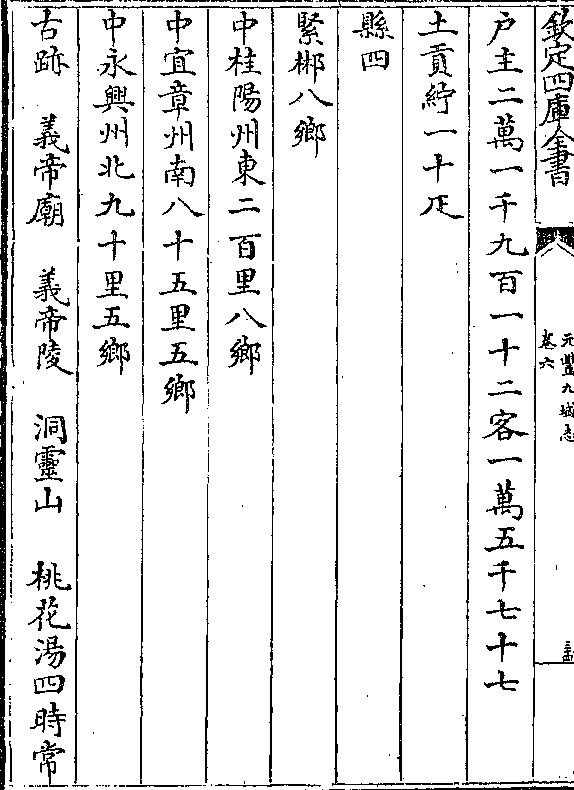 欽定四庫全書
元豐九域志
卷六
户主二萬一千九百一十二客一萬五千七十七
土貢紵一十疋
縣四
緊郴八鄉
中桂陽州東二百里八鄉
中宜章州南八十五里五鄉
中永興州北九十里五鄉
古跡　義帝廟　義帝陵　洞靈山　桃花湯四時常